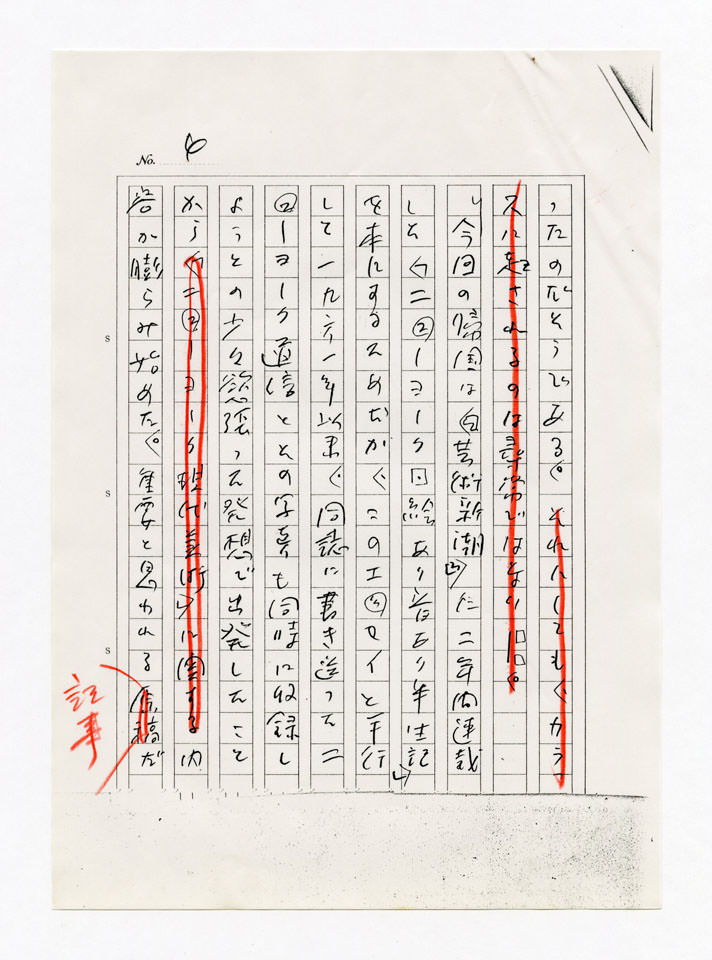 No. 4
ったのだそうである。それにしても、カラ
スに起されるのは尋常ではない
今回の帰国は『芸術新潮』に二年間連載
した〈ニューヨーク 絵あり音あり半生記〉
を本にするためだが、このエッセイと平行
して一九六一年以来、同誌に書き送ったニ
ューヨーク通信とその写真も同時に収録し
ようとの少々慾張った発想で出発したこと
から〈ニューヨーク現代美術〉に関する内
容が膨らみ始めた。重要と思われる原稿だ
記事
S
S
S